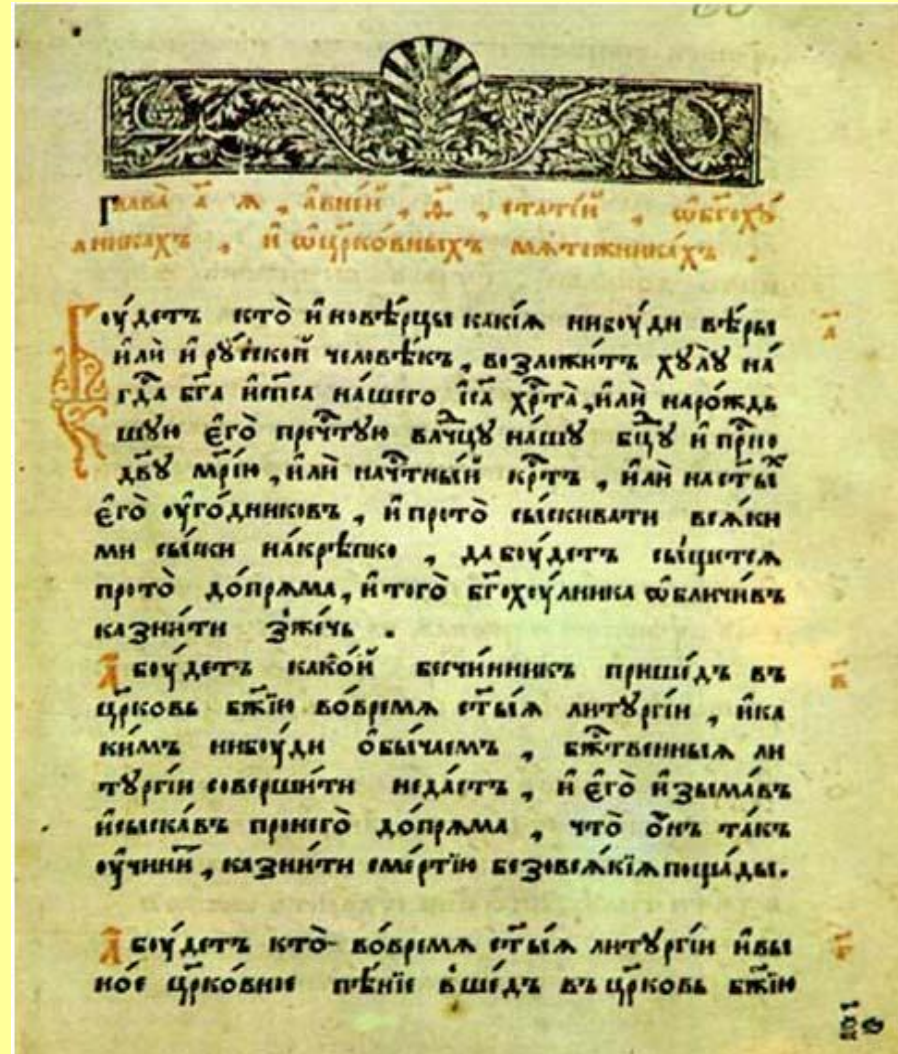 Глава̀ а҃ ѧ , а҆вне́й , ѳ҃ , стате́й , ѡ҆бг҃оху́
лникахъ , и҆ ѡ҆цр҃ко́вныхъ мѧте́жника́хъ .
Боу́детъ кто̀ и҆новѣ́рцы какі́ѧ нибоу́ди вѣ́ры а҃
и҆лѝ и҆ ру́ской человѣ́къ , возложи́тъ хꙋлꙋ̀ на́
гд҇а бг҃а и҆сп҃са на́шего і҆с҃а хр҇та̀ , и҆лѝ наро́ждь
шую є҆го̀ преч҇тую влч҇цꙋ на́шꙋ бц҃ꙋ и҆ пр҇но
дв҃ꙋ мр҃і́ю , и҆лѝ нач҇тны́й кр҇тъ , и҆лѝ наст҃ы́х
є҆го̀ оу҆го́дниковъ , и҆прото̀ сы́скивати всѧ́ки
ми сы́ски на́крѣпко , да боу́детъ сы́щетсѧ
прото̀ до́прѧма , и҆того̀ бг҃охоу́лника ѡ҆бличи́въ
казни́ти зже́чь .
А҆ боу́детъ како́й бесчи́нникъ прише́дъ въ в҃
цр҃ковь бж҃ію во́времѧ ст҃ы́ѧ литꙋргі́и , и҆ка
ки́мъ нибоу́ди ѻ҆бы́чаемъ , бж҇твенныѧ ли
тꙋргі́и соверши́ти неда́стъ , и҆ є҆го̀ и҆зыма́въ
и҆сыска́въ пронего̀ до́прѧма , что̀ ѻ҆́нъ та́къ
оу҆чини́т , казни́ти сме́ртїю безовсѧ́кіѧ поща́ды .
А҆ боу́детъ кто̀ во́времѧ ст҃ы́ѧ литꙋргі́и и҆вы г҃
но́е цр҃ко́вное пѣ́нїе вше́дъ въ цр҃ковь бж҃ію